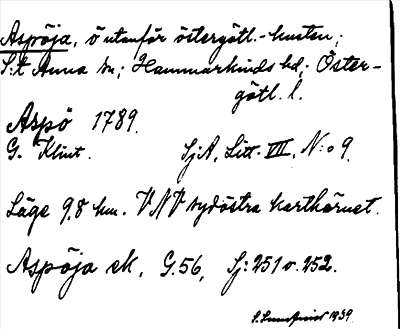 Aspöja, ö utanför östergötl.-kusten;
S:t Anna sn; Hammarkinds hd; Öster-
götl. l.
Aspö 1789.
G. Klint. SjA, Litt. VIII, N:o 9.
Läge 9,8 km. VNV sydöstra karthörnet.
Aspöja ek, G.56, Sj: 251 o. 252.
1939.